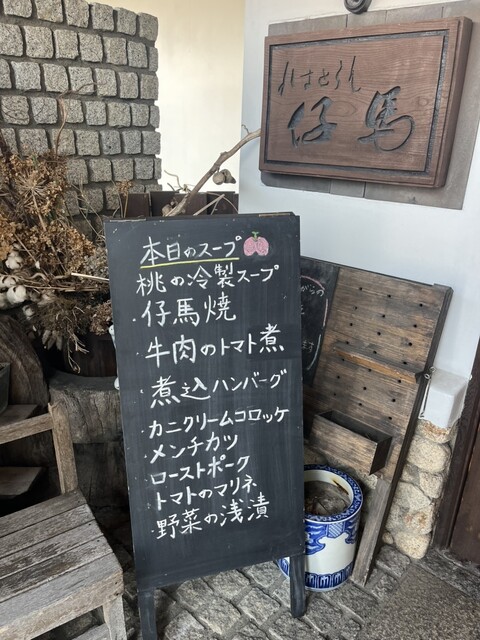 れすとらん
仔馬
本日のスープ
桃の冷製スープ
・仔馬焼
・牛肉のトマト煮
・煮込ハンバーグ
・カニクリームコロッケ
・メンチカツ
・ローストポーク
・トマトのマリネ
・野菜の浅漬